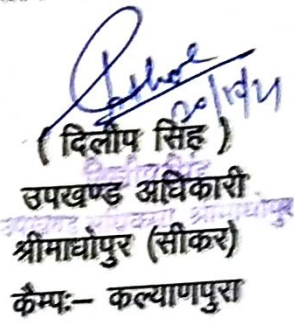 ( दिलीप सिंह )
उपखण्ड अधिकारी
श्रीमाधोपुर (सीकर)
कैम्पः– कल्याणपुरा